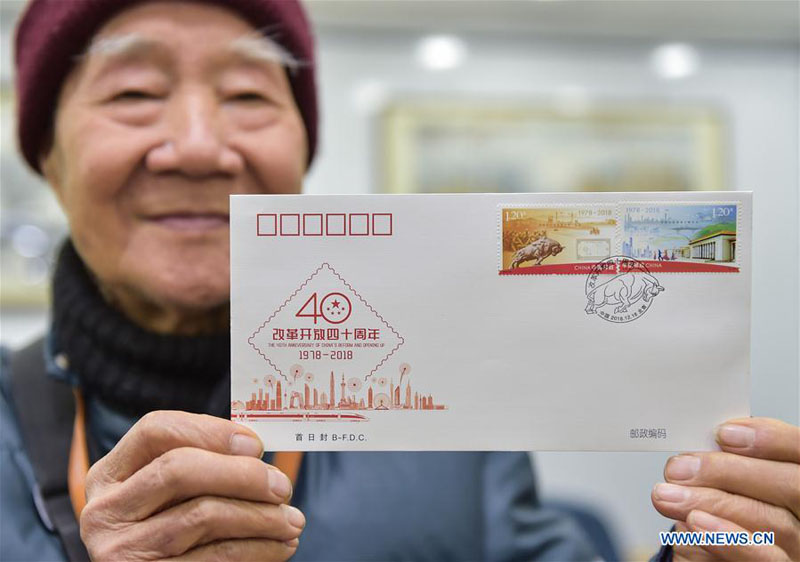 40
改革开放四十周年
THE 40TH ANNIVERSARY OF CHINA'S REFORM AND OPENING UP
1978-2018
首日封 B-F.D.C.
1.20元
1978-2018
CHINA 中国邮政
1978-2018
1.20元
中国邮政 CHINA
中国 2018.12.18 北京
邮政编码
WWW.NEWS.CN